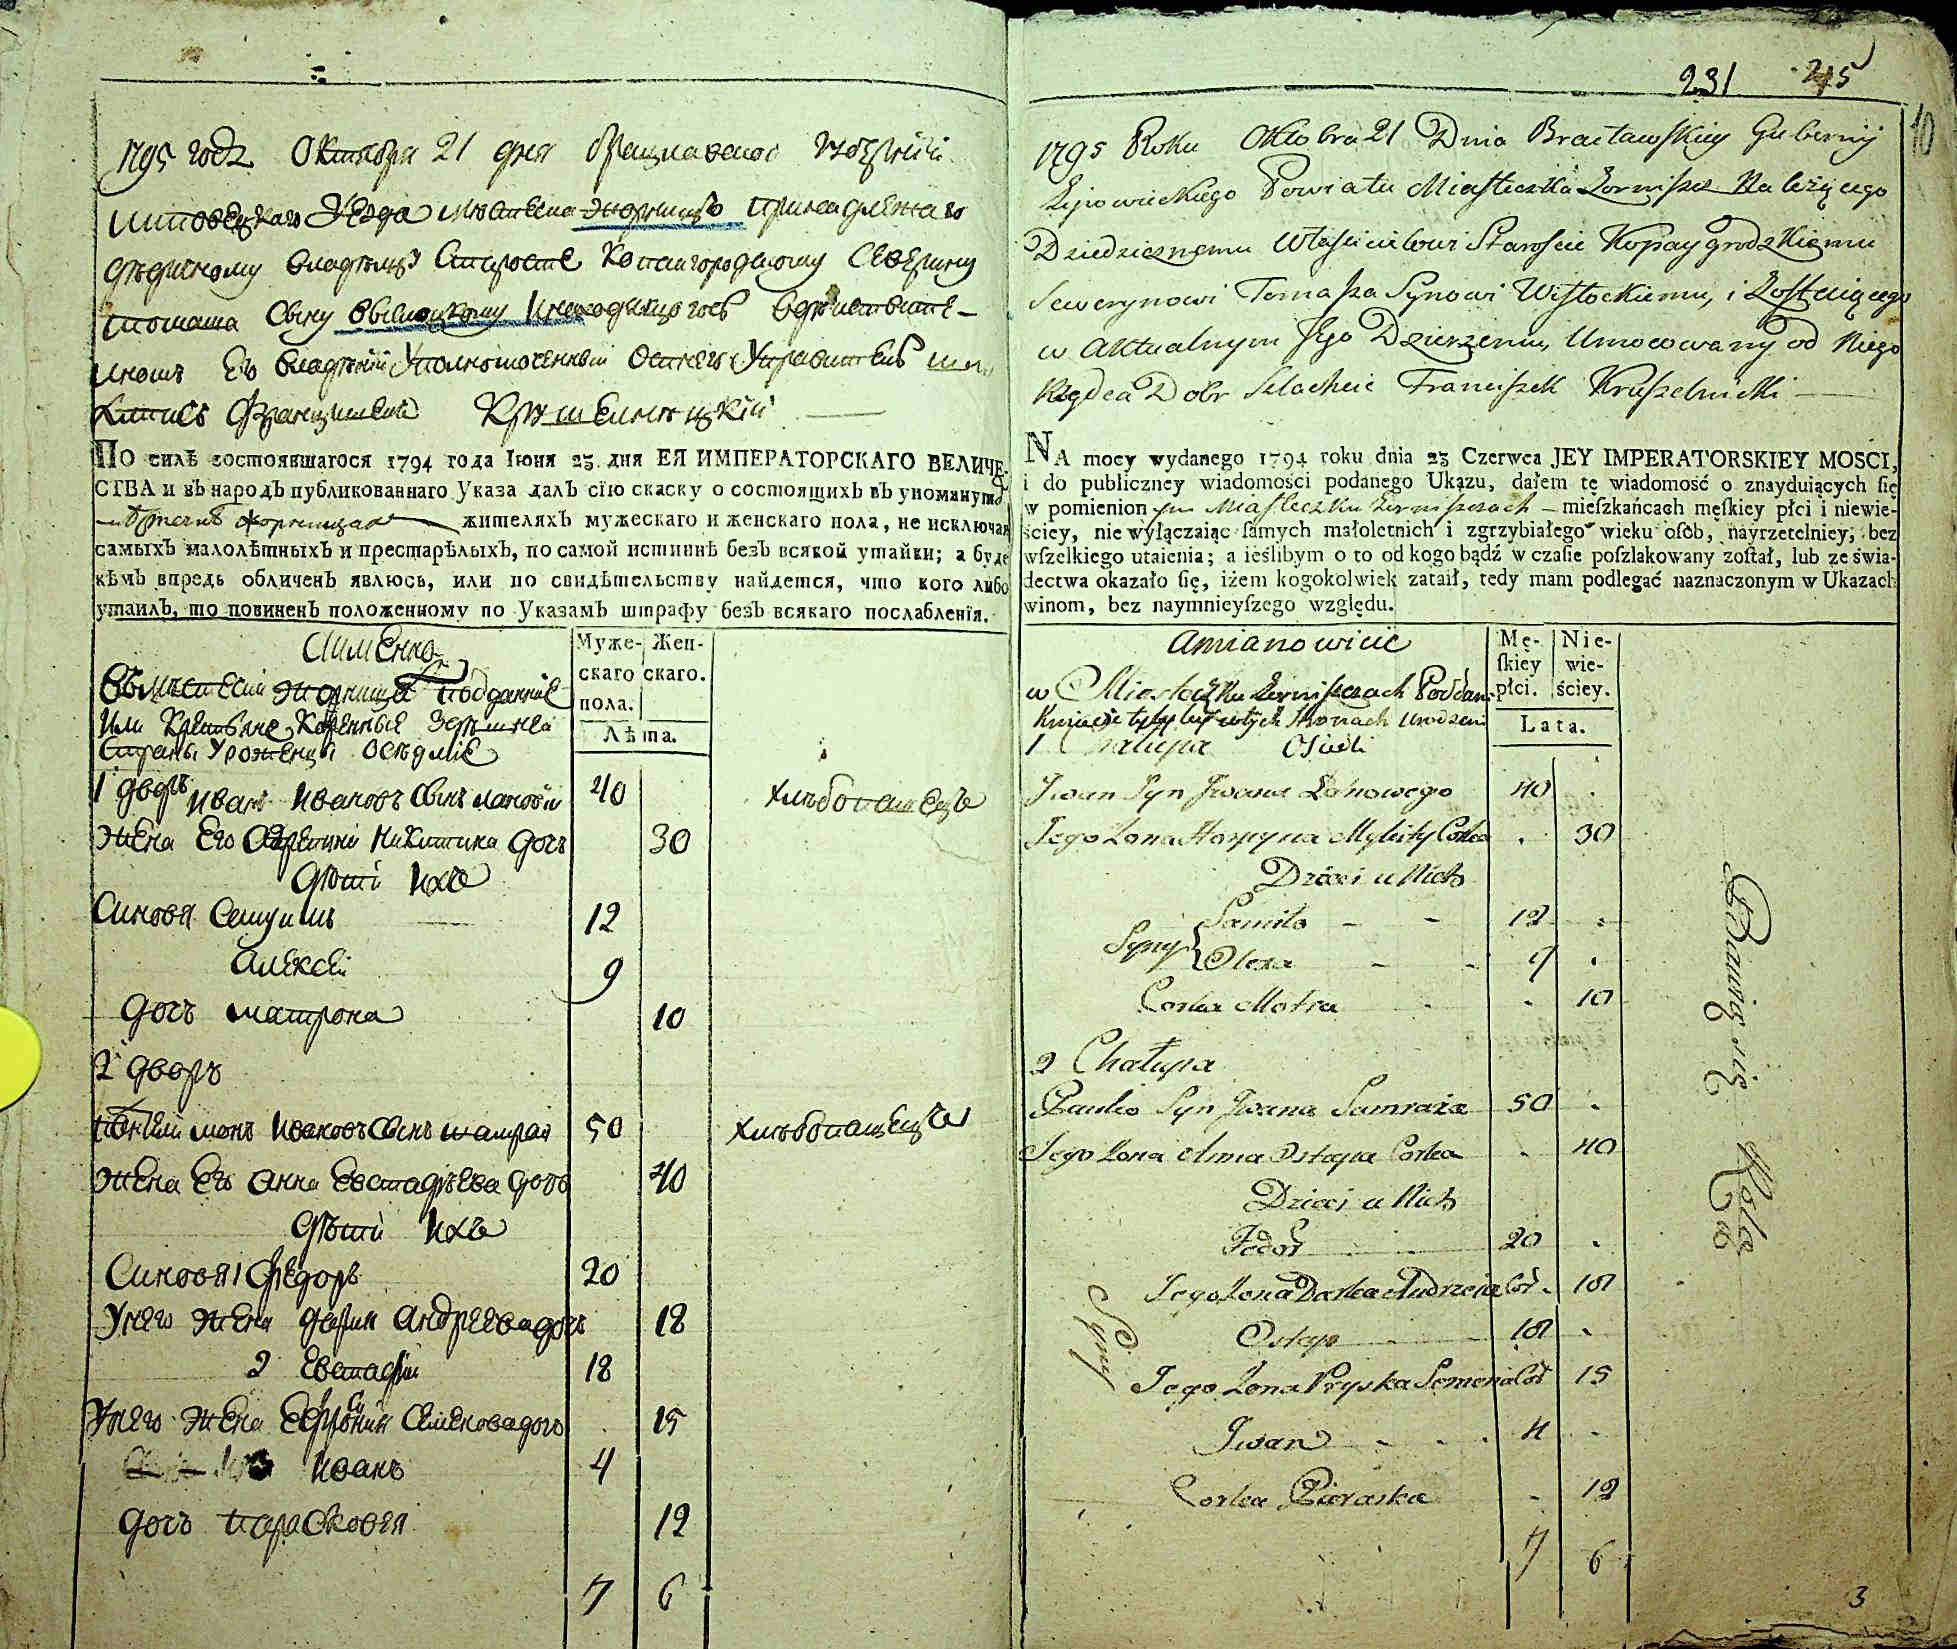 1795 годѫ Октября 21 дня Брацлавской губернiи
Липовецкаго Уезда местечка Жорнищъ принадлежаго
дѣдичному владѣльцу Старостѣ Копайгородскому Северину
Томаша сыну
владѣнiи Уполномоченный
Францишекъ Крушелницкiй
ПО силѣ состоявшагося 1794 года Iюня 23 дня ЕЯ ИМПЕРАТОРСКАГО ВЕЛИЧЕ-
СТВА и въ народъ публикованнаго Указа далъ сїю скаску о состоящихъ въ упомянутомъ
жителяхъ мужескаго и женскаго пола, не исключая
самыхъ малолѣтныхъ и престарѣлыхъ, по самой истиннѣ безъ всякой утайки; а буде
кѣмъ впредь обличенъ явлюсь, или по свидѣтельству найдется, что кого либо
утаилъ, то повиненъ положенному по Указамъ штрафу безъ всякаго послабленїя.
Аимянно
Муже- Жен-
скаго скаго.
пола.
Лѣта.
подданнiе
Или Крестьяне Коренные здешней
Страны Уроженцы оседлiе
1 дворъ Иванъ Ивановъ сынъ лановiй 40 хлѣбопашецъ
жена его Никитина дочъ 30
дѣти ихъ
Синовя Самуилъ 12
Алексей 9
дочъ матрона 10
2 дворъ
Ивановъ сынъ 50 хлѣбопашецъ
жена его Анна Евстафѣева дочъ 40
дѣти ихъ
Синовя 1 Федоръ 20
Унего жена дарiя Андреева дочъ 18
2 Евстафiй 18
Унего жена Семенова дочъ 15
Иванъ 4
дочъ парасковея 12
7 6
231 215
10
1795 Roku Oktobra 21 Dnia Bractawskiey Guberniy
Lipowieckiego Powiatu Miasteczka Żorniszcz Należącego
Dziedzicznemu Właścicielowi Staroście Kopaygrodzkiemu
Sewerynowi Tomasza Synowi Wisłockiemu, i Zostaiącego
w Aktualnym Jego Dzierzeniu, Umocowany od Niego
Rządca Dobr Szlachcic Franciszek Kruszelnicki
NA mocy wydanego 1794 roku dnia 23 Czerwca JEY IMPERATORSKIEY MOSCI,
i do publiczney wiadomości podanego Ukazu, daiem tę wiadomość o znayduiących ſię
w pomienionym Miasteczku Żorniszczach mieſzkańcach męſkiey płci i niewie-
ściey, nie wyłączaiąc ſamych małoletnich i zgrzybiałego wieku oſób, nayrzetelniey, bez
wſzelkiego utaienia; a ieślibym o to od kogo bądź w czaſie poſzlakowany zoſtał, lub ze świa-
dectwa okazało ſię, iżem kogokolwiek zataił, tedy mam podlegać naznaczonym w Ukazach
winom, bez naymnieyſzego względu.
Amianowicie
Mę- Nie-
ſkiey wie-
płci. ściey.
Lata.
w Miasteczku Żorniszczach Poddani
w tych Stronach Urodzeni
1 Chałupa Osiedli
Jwan Syn Jwana Łanowego 40
Jego Żona Horpyna Mykity Corka 30
Dzieci u Nich
Syny Samiło 12
Olexa 9
Corka Motra 10
2 Chałupa
Pawlo Syn Jwana Samraia 50
Jego Żona Anna Ostapa Corka 40
Dzieci u Nich
Fedor 20
Jego Żona Darka Andrzeia Cor. 18
Syny
Ostap 18
Jego Żona Pryska Semena Cor 15
Jwan 4
Corka Paraska 12
7 6
3